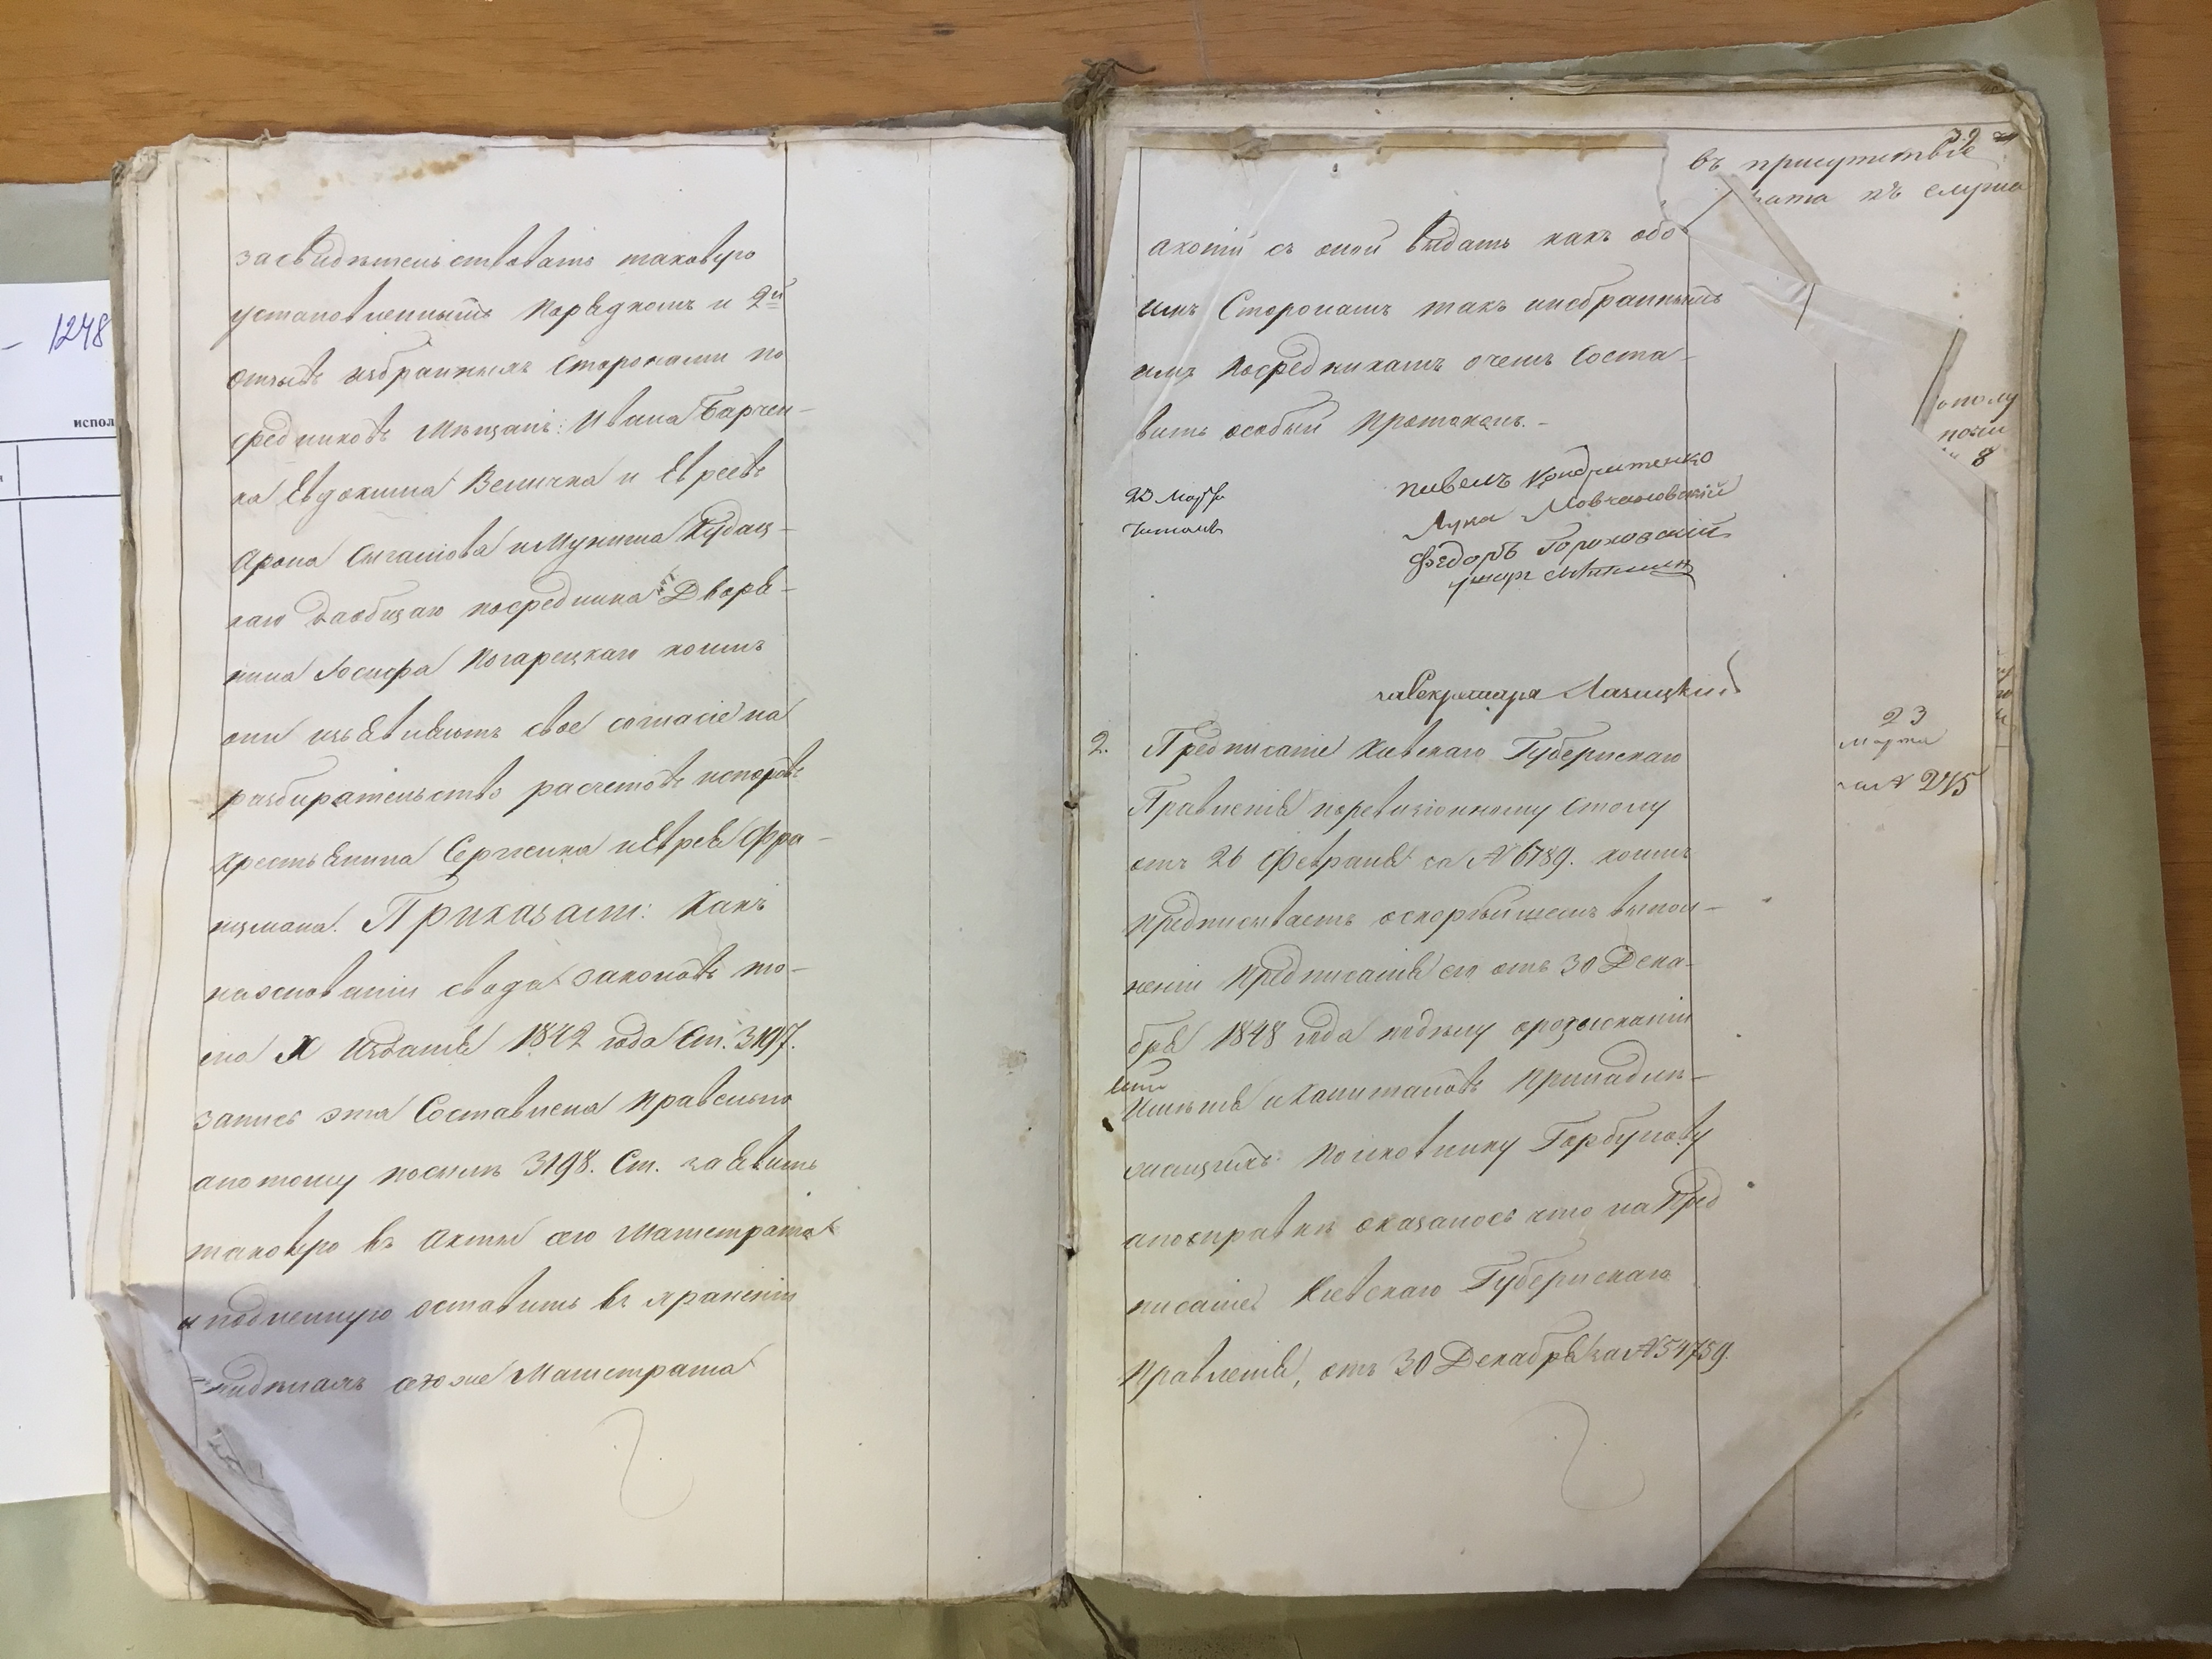 1248
испол
засвидѣтельствовать таковую
установленнымъ порядкомъ и 2й
отзывъ избранныхъ Сторонами по
средниковъ Мѣщанъ: Ивана Барчен-
ка Евдокима Величка и Евреевъ
Арона и
каго и общаго посредника Дворя-
нина Іосифа Погарецкаго коимъ
они изъявляютъ свое согласіе на
разбирательство расчетовъ испоровъ
крестьянина Сергиена иЕврея Фра-
нцмана. Приказали: Какъ
наосновании свода законовъ то-
ма X Изданія 1842 года Ст. 3197.
запись эта Составлена правельно
апотому посилѣ 3198. Ст. заявить
таковую въ Акты сего Магистрата
и подленную оставить въ храненіи
сегоже Магистрата
32
въ присутствіе
рата къ слуша
акопіи съ оной выдать какъ обо
имъ Сторонамъ такъ иизбраннымъ
имъ Посредникамъ очемъ Соста-
вить особый Протоколъ.-
23 Марта
Читалъ
Павелъ Кондратенко
Лука Мовчановскій
Федоръ Гороховскій
заСекретаря Лазицкій
2. Предписаніе Кіевскаго Губернскаго
Правленія поревизіонному Столу
отъ 26 Февраля за № 6789. коимъ
предписываетъ оскорѣйшемъ выпол-
неніи Предписанія его отъ 30 Дека-
бря 1848 года подѣлу орозысканіи
Имѣнія иКапиталовъ Принадлѣ-
жащихъ Полковнику Горбунову
апосправкѣ оказалось что на Пред
писаніе Кіевскаго Губернскаго
Правленія, отъ 30 Декабря за № 54759.
23
Марта
за № 245